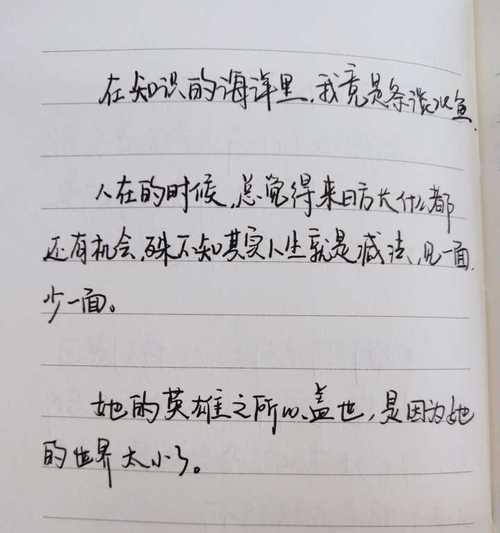 在知识的海洋里,我竟是条淡水鱼.
人在的时候,总觉得来日方长什么都
还有机会,殊不知其实人生就是减法,见一面.
少一面。
她的英雄之所以盖世,是因为她
的世界太小了。